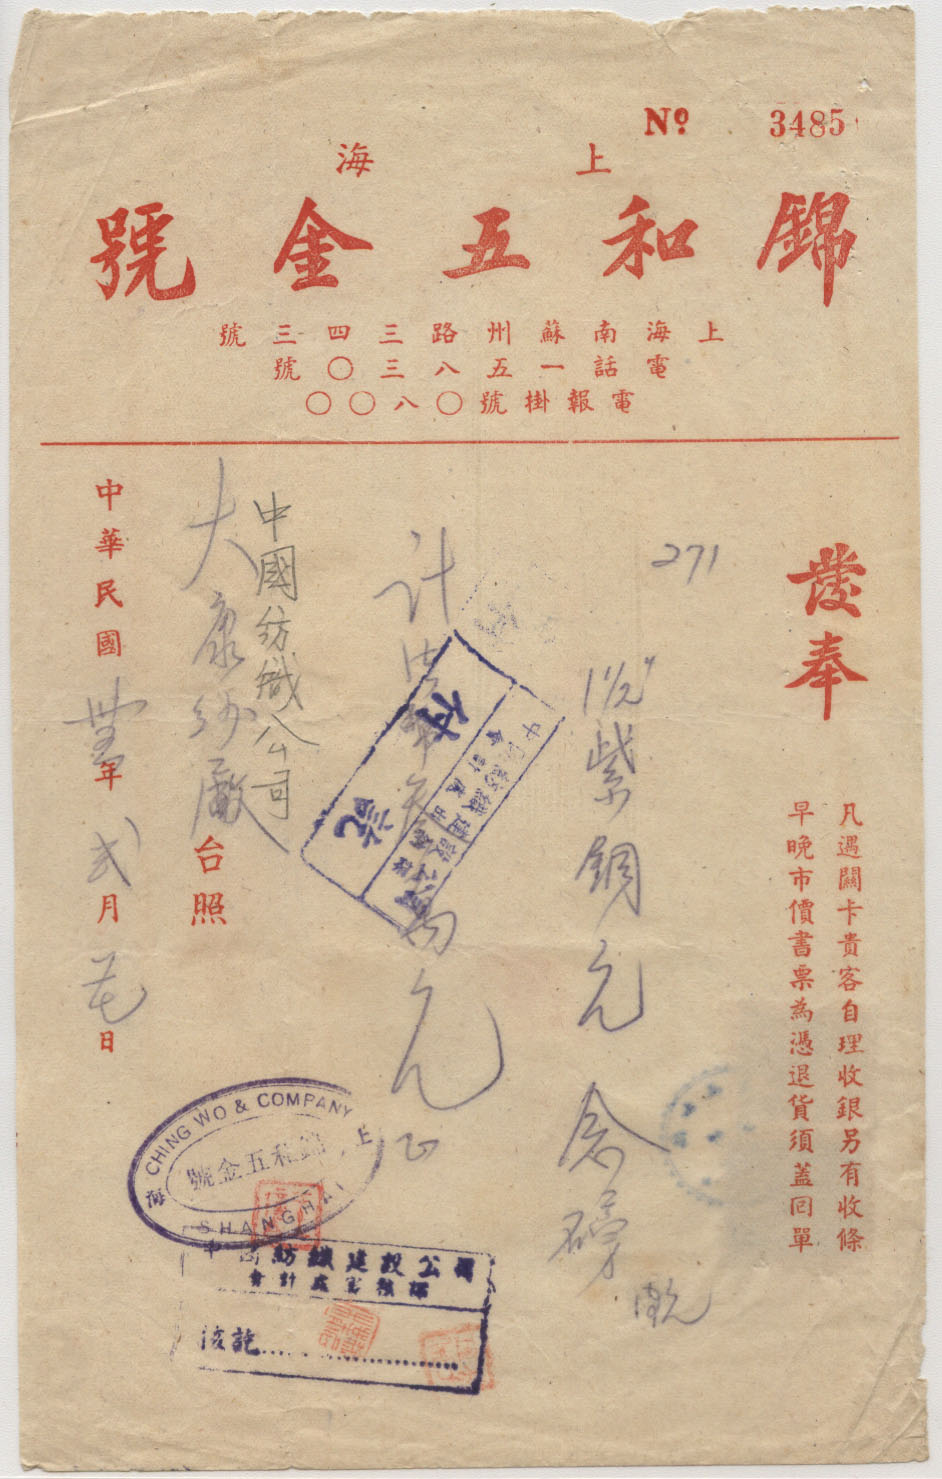 No 3485
上海
錦和五金號
上海南蘇州路三四三號
電話一五八三〇號
電報掛號〇八〇〇
發奉
凡遇關卡貴客自理收銀另有收條
早晚市價書票為憑退貨須蓋回單
271
紫銅元 念磅
計法幣 萬元正
中國紡織建設公司
付訖
中國紡織公司
大康紗廠 台照
中華民國 年 弍月 日
CHING WO & COMPANY
上海
錦和五金號
SHANGHAI
中國紡織建設公司
會計處審核課
核訖